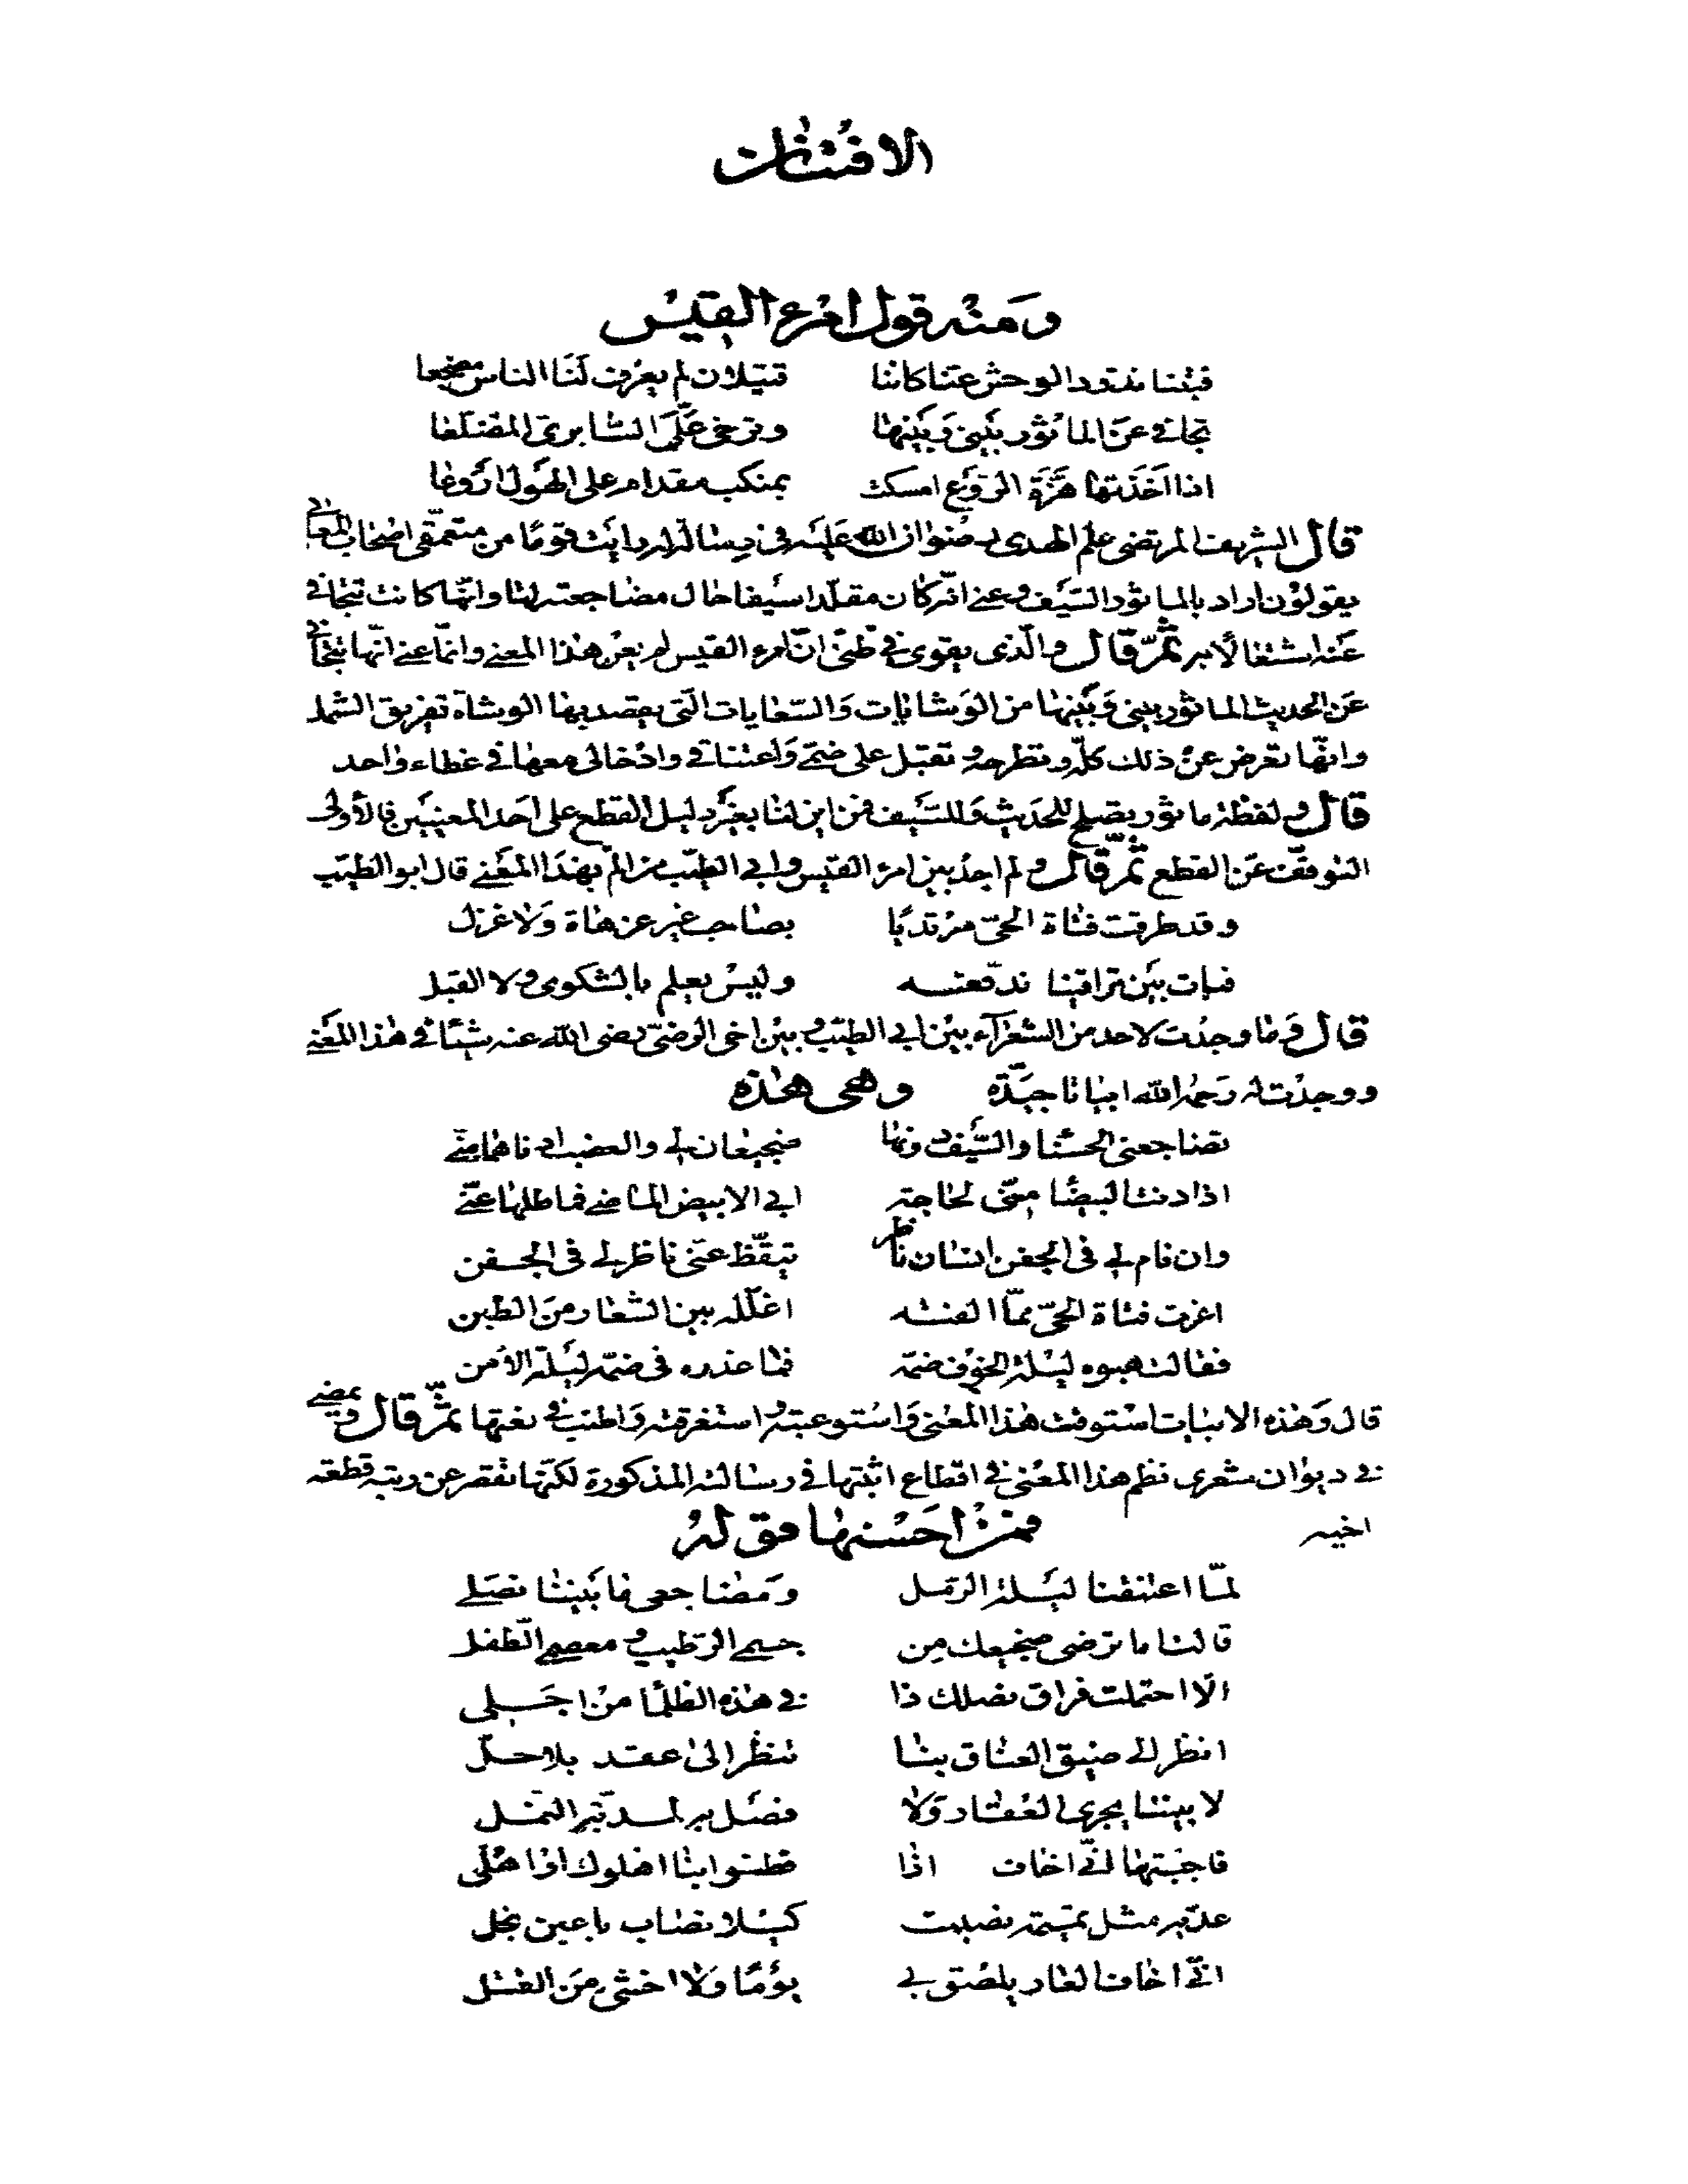 الافتنان
ومنه قول امرء القيس
فبتنا نذود الوحش عنا كاننا قتيلان لم يعرف لنا الناس مضجعا
تجافى عن الماثور بيني وبينها وترخى علي السابري المضلعا
اذا اخذتها هزة الروع امسكت بمنكب مقدام على الهول اروعا
قال الشريف المرتضى علم الهدى رضوان الله عليه في رسالة له رايت قوما من متعمقي اصحاب المعاني
يقولون اراد بالماثور السيف وعنى انه كان مقلدا سيفا حال مضاجعته لها وانها كانت تتجافى
عنه استثقالا به ثم قال والذي يقوى في ظني ان امرء القيس لم يعن هذا المعنى وانما عنى انها تتجافى
عن الحديث الماثور بيني وبينها من الوشايات والسعايات التي يقصد بها الوشاة تفريق الشمل
وانها تعرض عن ذلك كله وتطرحه وتقبل على ضمي واعتناقي وادخالي معها في غطاء واحد
قال ولفظة ماثور يصلح للحديث وللسيف فمن اين لنا بغير دليل القطع على احد المعنيين فالاولى
التوقف عن القطع ثم قال ولم اجد بين امرء القيس وابي الطيب من الم بهذا المعنى قال ابو الطيب
وقد طرقت فتاة الحي مرتديا بصاحب غير عزهاة ولا غزل
فبات بين تراقينا ندفعه وليس يعلم بالشكوى ولا القبل
قال وما وجدت لاحد من الشعراء بين ابي الطيب وبين اخي الرضي رضى الله عنه شيئا في هذا المعنى
ووجدت له رحمه الله ابياتا جيدة وهي هذه
تضاجعني الحسنا والسيف دونها ضجيعان لي والعضب ادناهما مني
اذا دنت البيضا مني لحاجة ابي الابيض الماضي فماطلها عني
وان نام لي في الجفن انسان ناظر تيقظ عني ناظر لي في الجفن
اغرت فتاة الحي مما الفته اغلله بين الشعار من الظبن
فقالت هبوه ليلة الخوف ضمه فما عذره في ضمه ليلة الامن
قال وهذه الابيات استوفت هذا المعنى واستوعبته واستغرقته واطنب في نعتها ثم قال ويمضي
في ديوان شعري نظم هذا المعنى في اقطاع اثبتها في رسالته المذكورة لكنها تقصر عن رتبة قطعة
اخيه
فمن احسنها قوله
لما اعتنقنا ليلة الرمل ومضاجعي ما بيننا نصلي
قالت اما ترضى ضجيعك من جسمي الرطيب ومعصمي الطفل
الا احتملت فراق نصلك ذا في هذه الظلما من اجلي
انظر الى ضيق العناق بنا تنظر الى عقد بلا حل
لا بيننا يجري العقار ولا فضل به لمدبة النمل
فاجبتها اني اخاف اذا فطنوا بنا اهلوك او اهلي
عديه مثل تميمة نصبت كيلا نصاب باعين نجل
اني اخاف العار يلصق بي يوما ولا اخشى من القتل